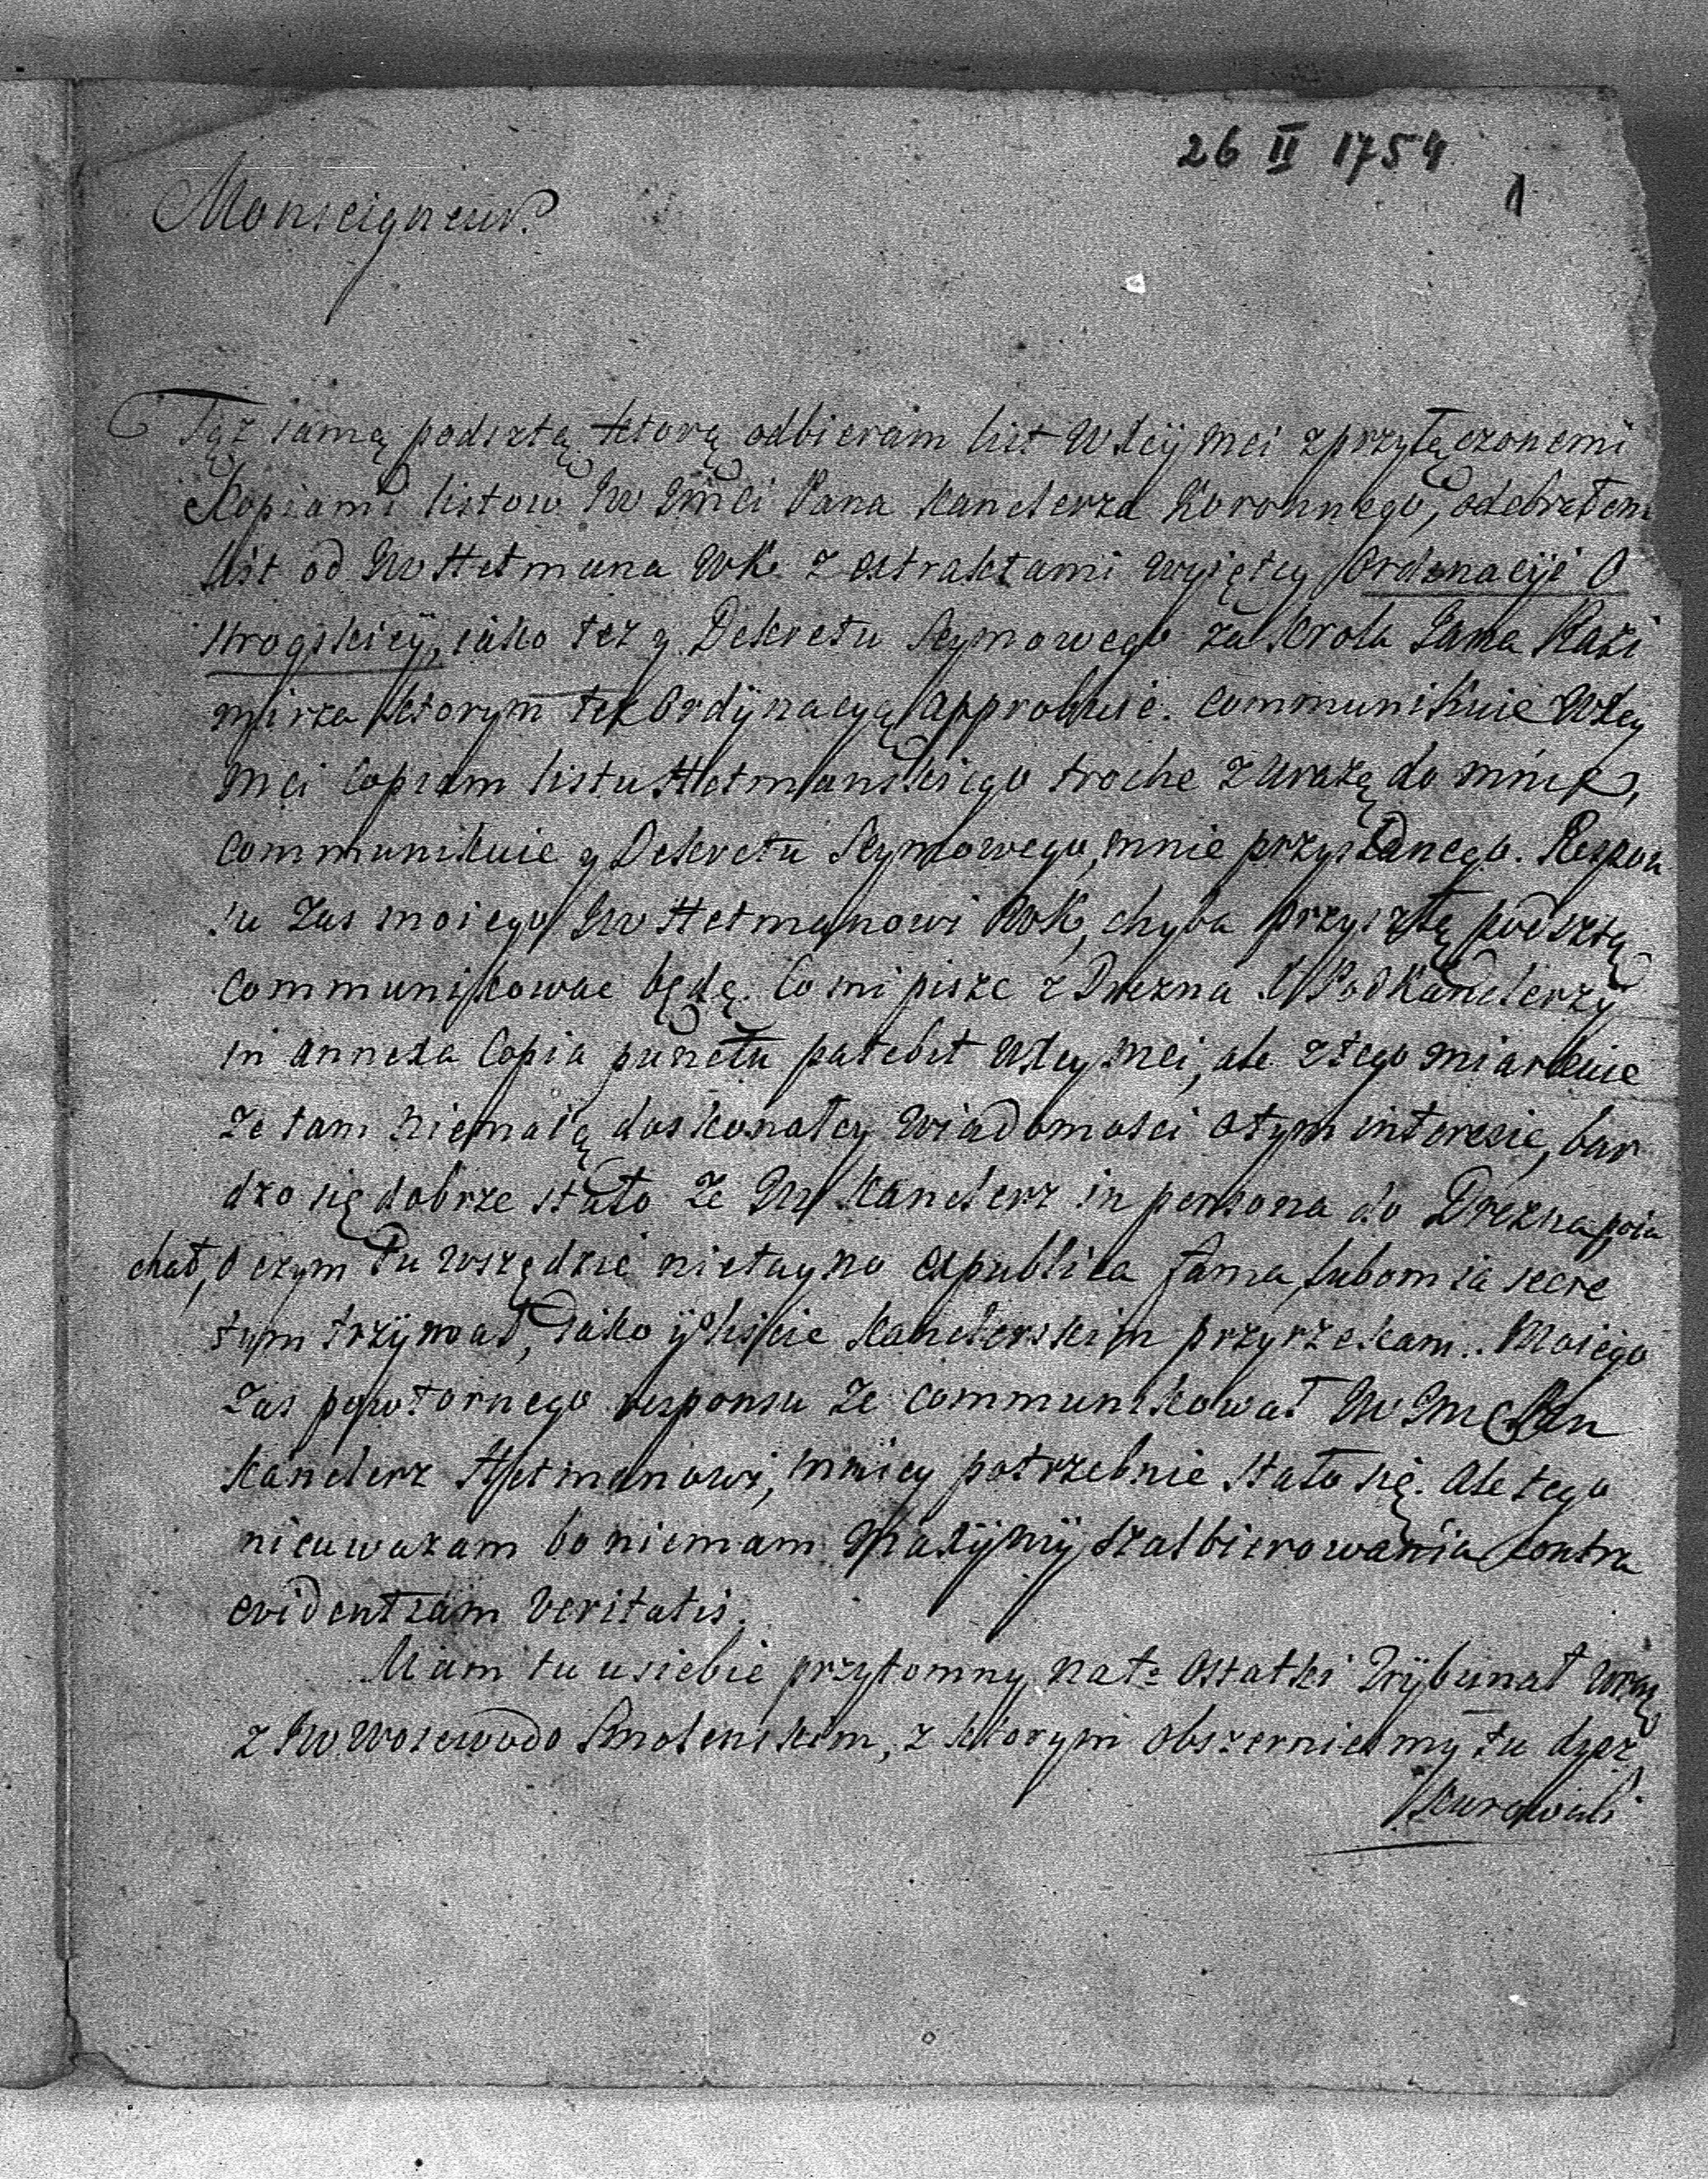 26 II 1754
1
Monseigneur.
Tąż samą podsztą ktorą odbieram list WXcÿ Mci z przyłączonemi
Kopiami listow JW JMci Pana Kanclerza Koronnego, odebrałem
list od JW Hetmana WK. z extraktami wyiętey Ordynacÿi O
strogskieÿ, iako tez y Dekretu Seymowego za Krola Jana Kazi
mirza ktorym tęż Ordÿnacyą approbuie. Communikuie WXcy
Mci Copiam listu Hetmanskiego troche z urazą do mnie,
Communikuie y Dekretu Seymowego, mnie przysłanego. Respon
su zas moiego JW Hetmanowi WK, chyba przyszłą podsztą
Communikowac będę. Co mi pisze z Drezna X PodKanclerzy
in annexa Copia punctu patebit WXcy Mci, ale z tego miarkuie
ze tam niemaią doskonałey wiadomosci o tym interesie, bar
dzo się dobrze stało ze JW Kanclerz in persona do Drezna poia
chał, o czym tu wszędzie nietayno ex publica fama, lubom ia secre
tum trzÿmał, iako ÿ w liscie Kanclerskim przyrzekam. Moiego
zas powtornego responsu ze communikował JW JMc Pan
Kanclerz Hetmanowi, mniey potrzebnie stało się. Ale tego
nieuwazam bo niemam maxÿmÿ szalbierowania contra
evidentiam veritatis.
Mam tu u siebie przytomny na te Ostatki Trÿbunał wraz
z JW Woiewodo Smolenskim, z ktorym obszernie my tu dysz
kurowali